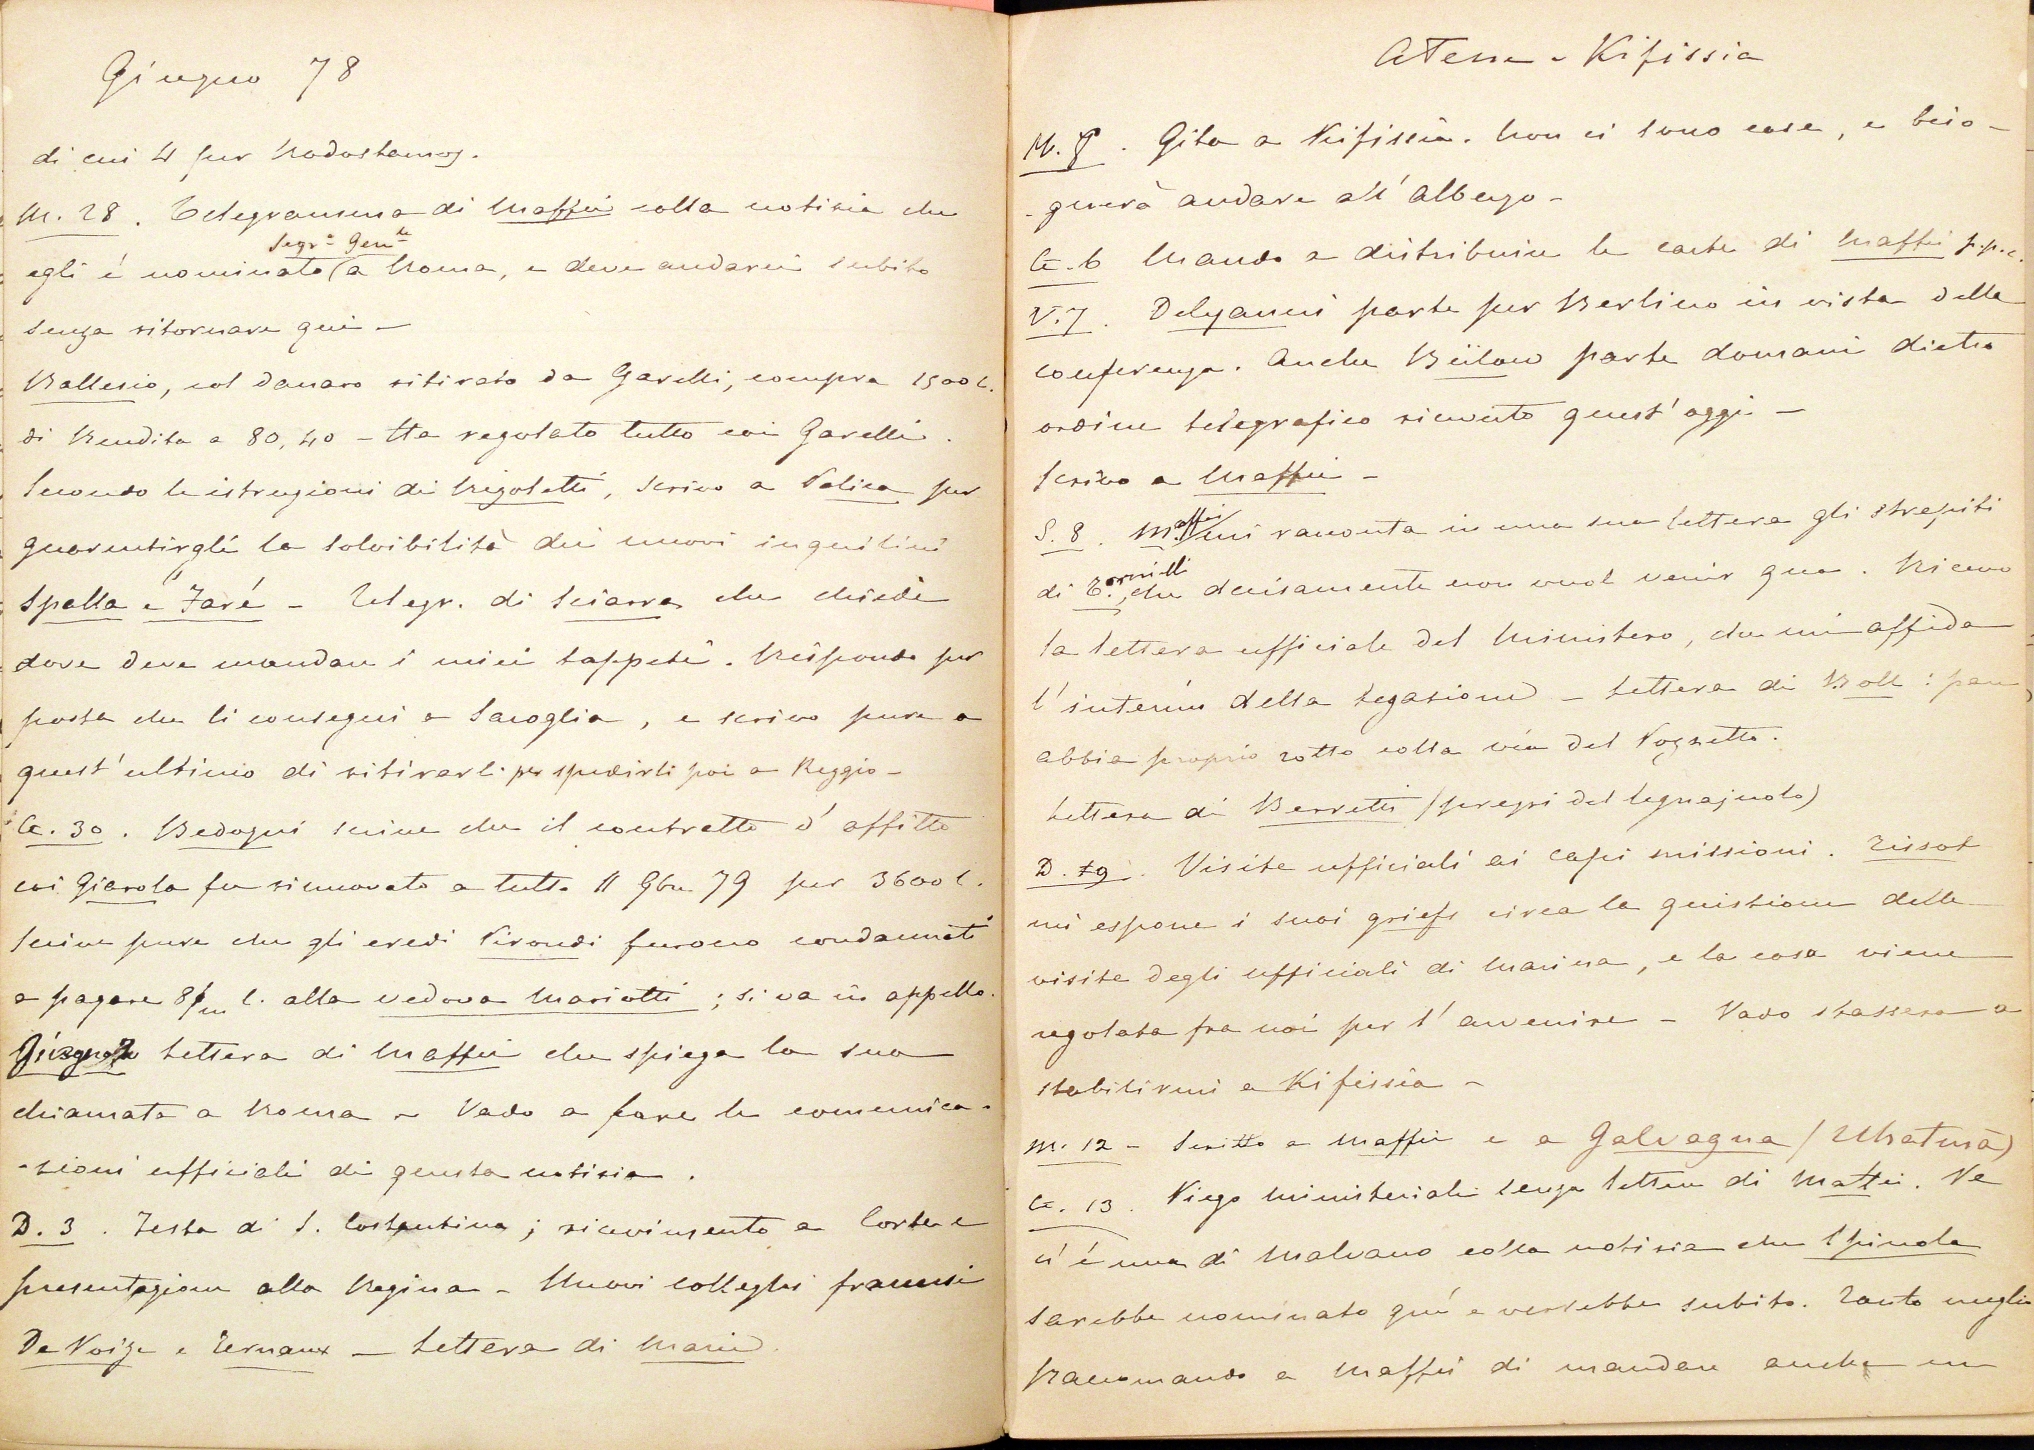 Giugno 78
di cui 4 per
M. 28. Telegramma di Maffei colla notizia che
Segr.o Gen.le
egli è nominato (a Roma, e deve andarci subito
senza ritornare qui -
Ballerio, col danaro ritirato da Garelli, compra 1500 l.
di Rendita a 80,40 - Ha regolato tutto coi Garelli.
Secondo le istruzioni di Rigoletti, scrivo a per
guarentirgli la solvibilità dei nuovi inquilini
Spalla e Faré - Telegr. di Sciarra che chiede
dove deve mandare i miei tappeti. Rispondo per
posta che li consegni a Saroglia, e scrivo pure a
quest'ultimo di ritirarli per spedirli poi a Reggio -
G. 30. Bedogni scrive che il contratto d'affitto
coi Giarola fu rinnovato a tutto 11 9bre 79 per 3600 l.
Scrive pure che gli eredi furono condannati
a pagare 8/m l. alla vedova Mariotti; si va in appello.
Giugno 2 Lettera di Maffei che spiega la sua
chiamata a Roma - Vado a fare le comunica-
-zioni ufficiali di questa notizia.
D. 3. Festa di S. Costantino; ricevimento a Corte e
presentazione alla Regina - Nuovi colleghi francesi
De Voize e Ternaux - Lettera di Marie
Atene - Kifissia
M. 5. Gita a Kifissia. Non ci sono case, e biso-
-gnerà andare all'albergo -
G. 6 Mando a distribuire le carte di Maffei p.p.c.
V. 7. Delyanni parte per Berlino in vista della
conferenza. Anche Bülow parte domani dietro
ordine telegrafico ricevuto quest'oggi -
Scrivo a Maffei -
S. 8. Maffei mi racconta in una sua lettera gli strepiti
di Tornielli, che decisamente non vuol venir qua. Ricevo
la lettera ufficiale del Ministero, che mi affida
l'interim della Legazione - Lettera di Boll: pare
abbia proprio rotto colla via del Pozzetto.
Lettera di Berretti (pregri del legnajuolo)
D. 9. Visite ufficiali ai capi missioni. Tissot
mi espone i suoi griefs circa la quistione delle
visite degli ufficiali di Marina, e la cosa viene
regolata fra noi per l'avvenire - Vado stassera a
stabilirmi a Kifissia -
M. 12 - Scritto a Maffei e a Galvagna
G. 13. Piego ministeriale senza lettere di Maffei. Ve
n'è una di Malvano colla notizia che Spinola
sarebbe nominato quì e verrebbe subito. Tanto meglio
Raccomando a Maffei di mandare anche un